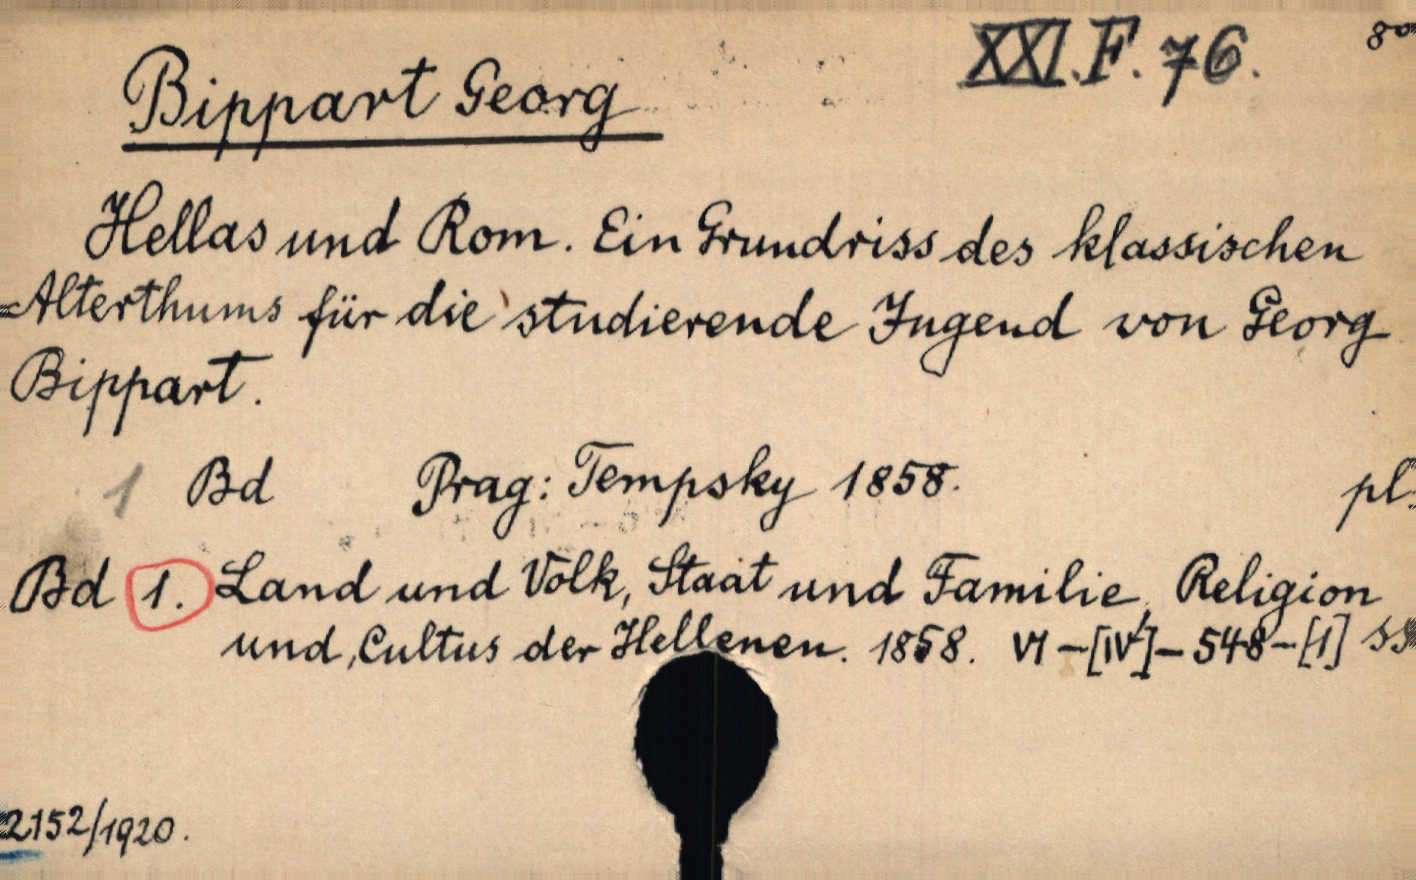 XXI.F.76. 8°
Bippart Georg
Hellas und Rom. Ein Grundriss des klassischen
Alterthums für die studierende Jugend von Georg
Bippart.
1 Bd Prag: Tempsky 1858. pł.
Bd 1. Land und Volk, Staat und Familie, Religion
und Cultus der Hellenen. 1858. VI-[IV]-548-[1] ss
2152/1920.